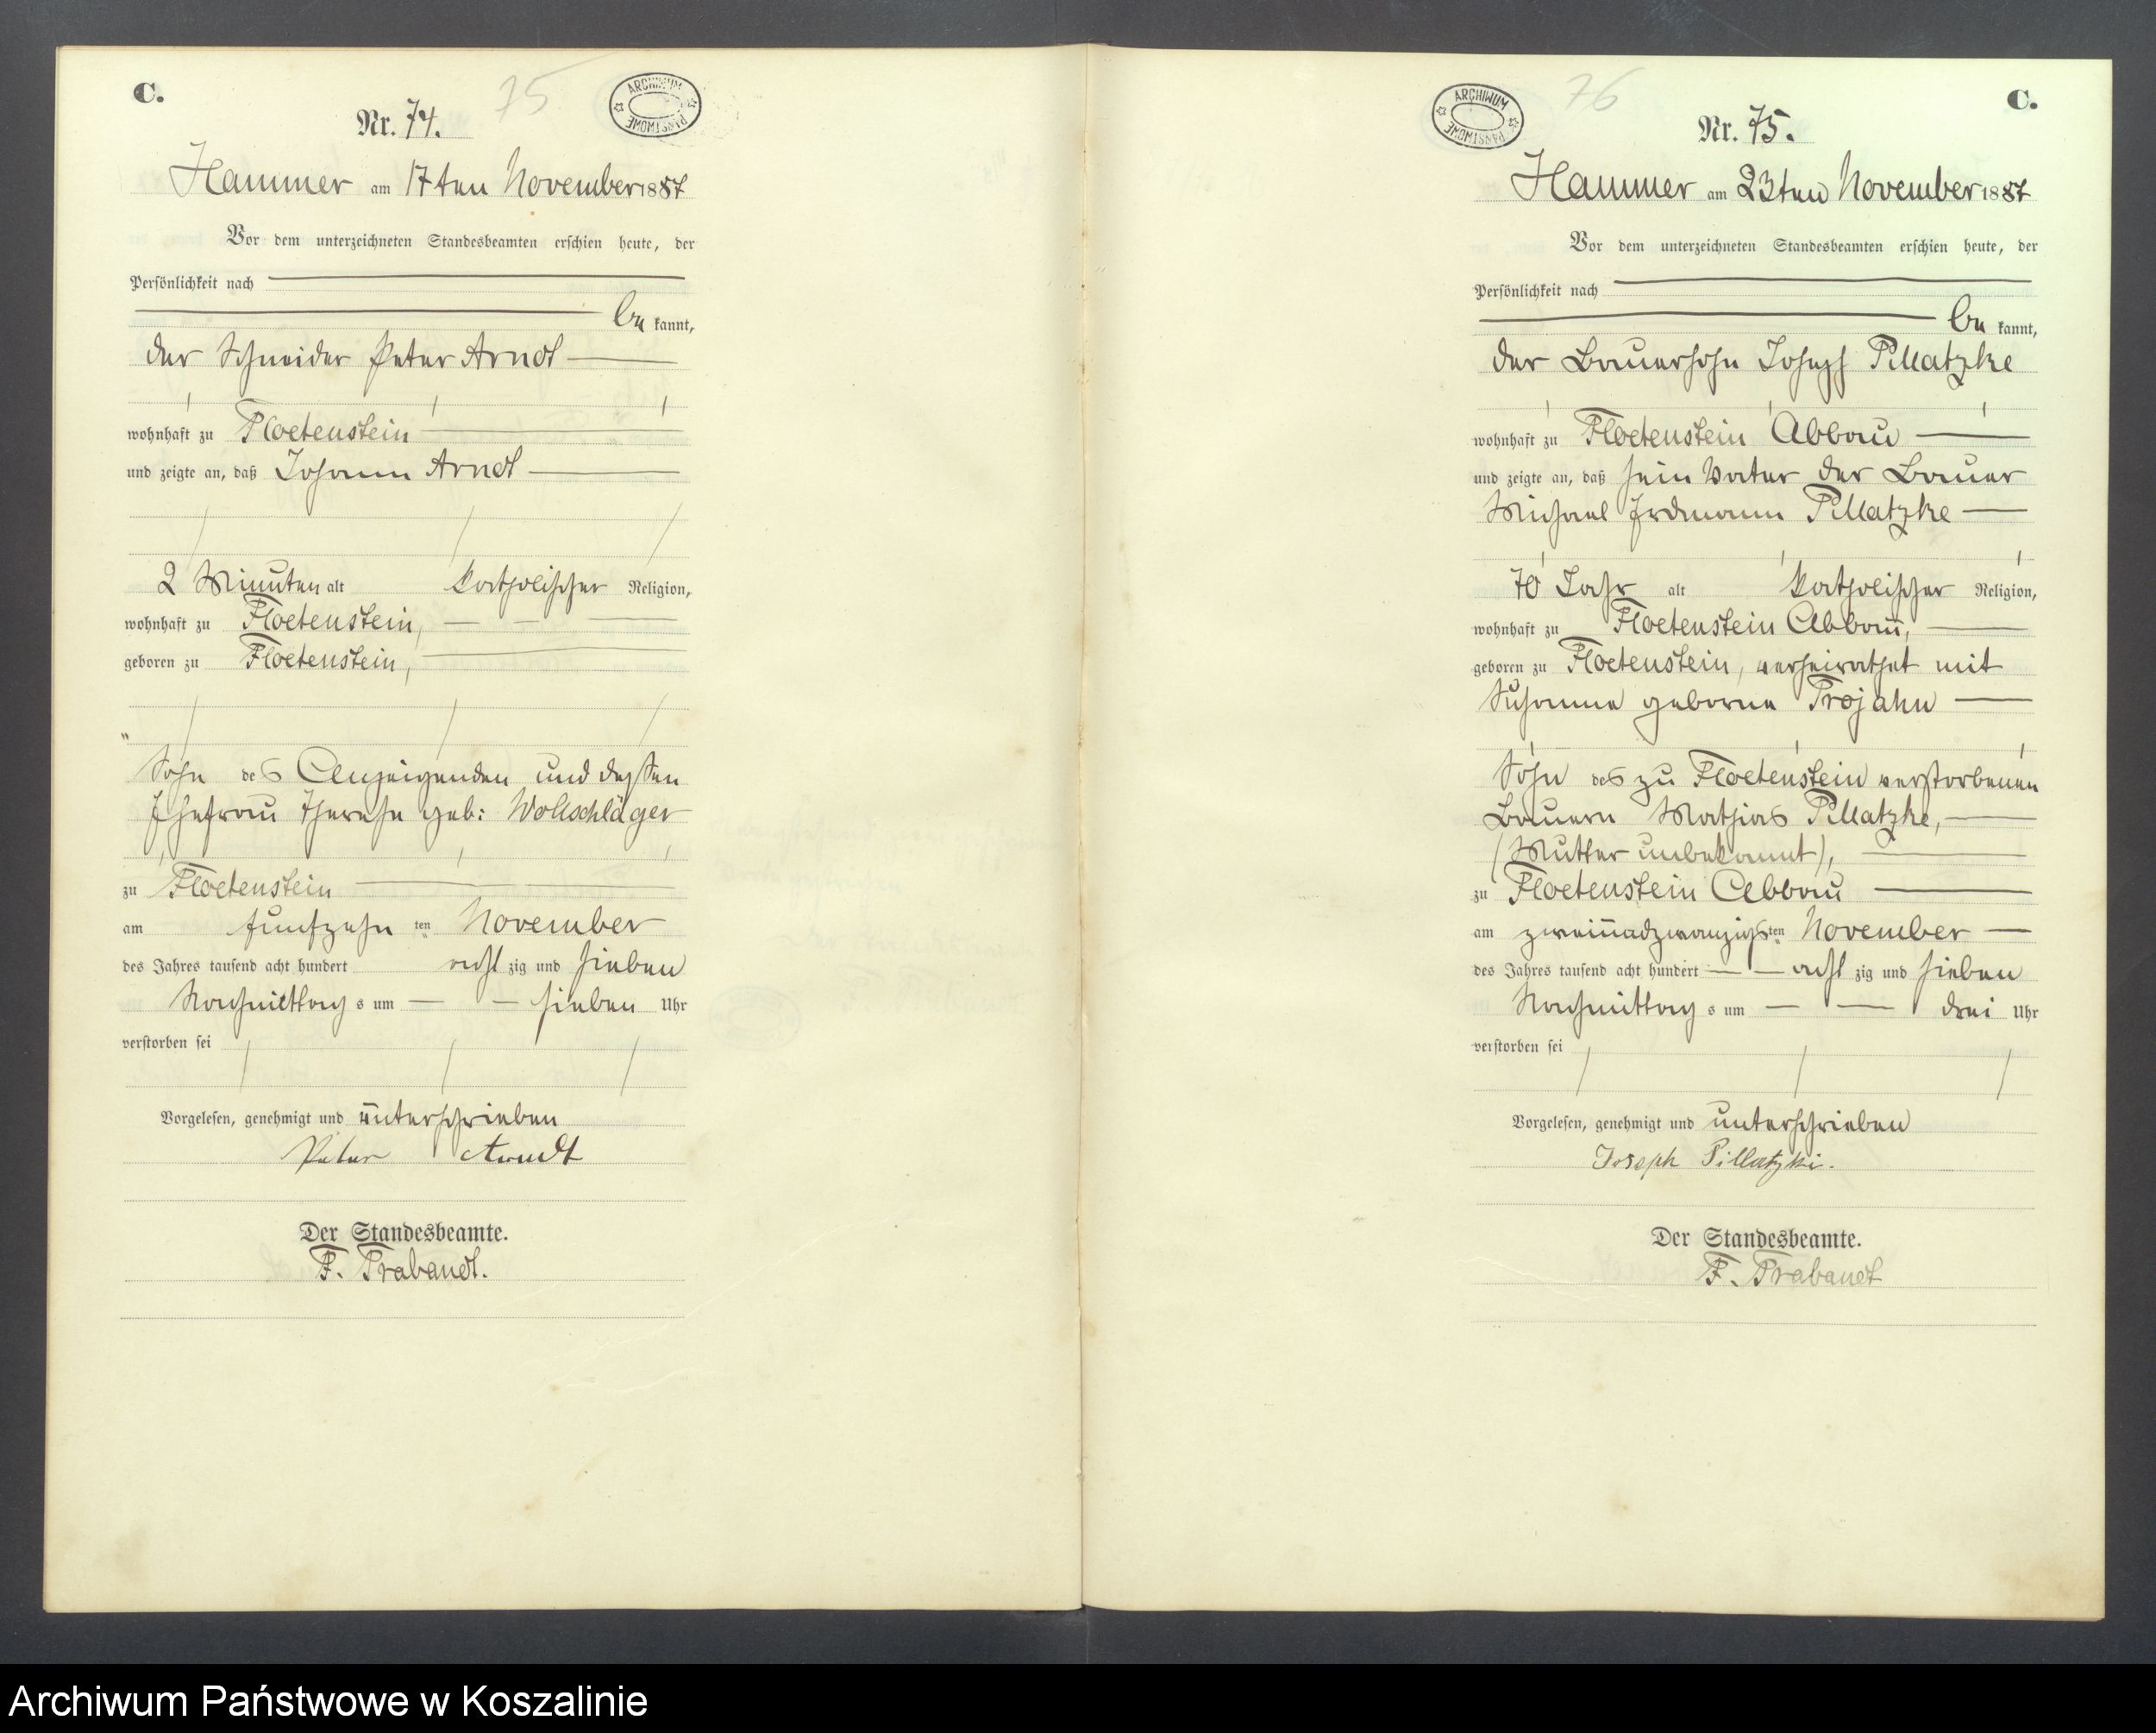 C.
75
ARCHIWUM PAŃSTWOWE
Nr. 74.
Hammer am 17ten November 1887
Vor dem unterzeichneten Standesbeamten erschien heute, der
Persönlichkeit nach
be kannt,
der Schneider Peter Arndt
wohnhaft zu Floetenstein
und zeigte an, daß Johann Arndt
2 Minuten alt katholischer Religion,
wohnhaft zu Floetenstein,
geboren zu Floetenstein,
Sohn des Anzeigenden und dessen
Ehefrau Therese geb: Wollschläger
zu Floetenstein
am fünfzehn ten November
des Jahres tausend acht hundert acht zig und sieben
Nachmittag s um sieben Uhr
verstorben sei
Vorgelesen, genehmigt und unterschrieben
Peter Arndt
Der Standesbeamte.
F. Trabandt.
C.
76
ARCHIWUM PAŃSTWOWE
Nr. 75.
Hammer am 23ten November 1887
Vor dem unterzeichneten Standesbeamten erschien heute, der
Persönlichkeit nach
be kannt,
der Bauersohn Joseph Pillatzke
wohnhaft zu Floetenstein Abbau
und zeigte an, daß sein Vater der Bauer
Michael Erdmann Pillatzke
70 Jahr alt katholischer Religion,
wohnhaft zu Floetenstein Abbau,
geboren zu Floetenstein, verheirathet mit
Susanna geborne Trojahn
Sohn des zu Floetenstein verstorbenen
Bauern Mathias Pillatzke,
(Mutter unbekannt),
zu Floetenstein Abbau
am zweiundzwanzigsten November
des Jahres tausend acht hundert acht zig und sieben
Nachmittag s um drei Uhr
verstorben sei
Vorgelesen, genehmigt und unterschrieben
Joseph Pillatzki.
Der Standesbeamte.
F. Trabandt
Archiwum Państwowe w Koszalinie